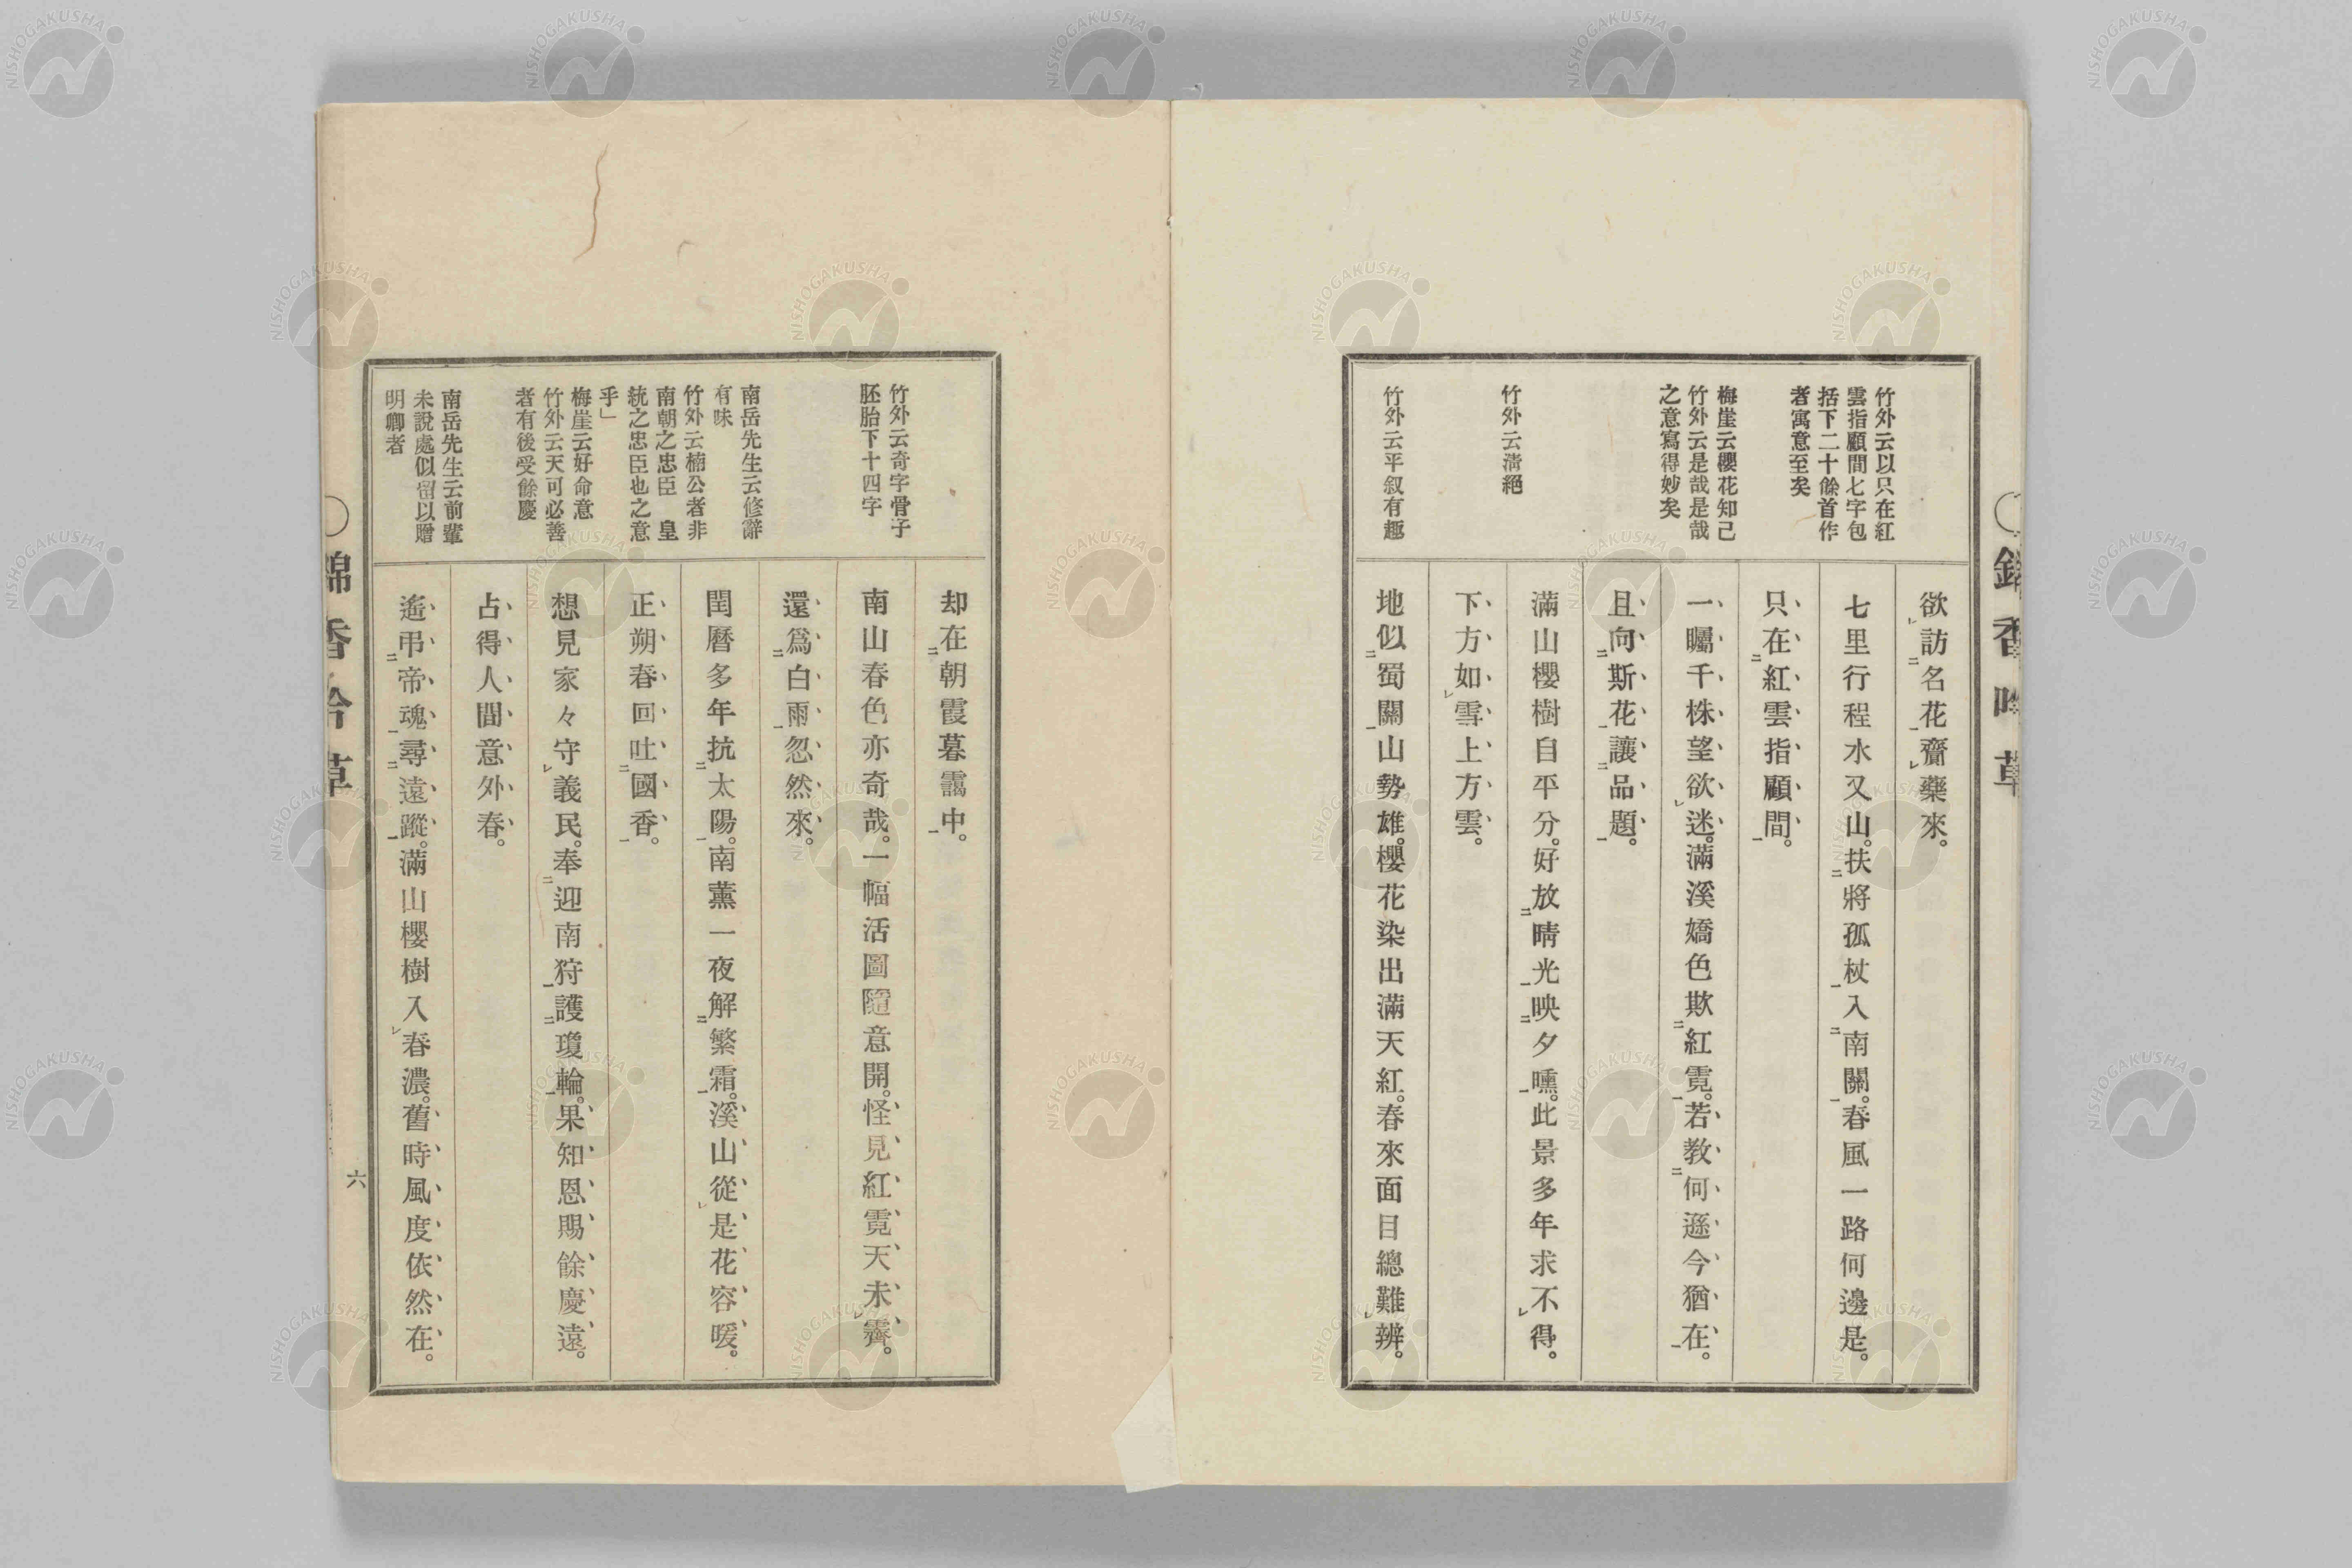 竹外云以只在紅
雲指顧間七字包
括下二十餘首作
者寓意至矣
梅崖云櫻花知己
竹外云是哉是哉
之意寫得妙矣
竹外云淸絕
竹外云平叙有趣
欲訪名花齎藥來。
七里行程水又山。扶將孤杖入南關。春風一路何邊是。
只在紅雲指顧間。
一矚千株望欲迷。滿溪嬌色欺紅霓。若敎何遜今猶在。
且向斯花讓品題。
滿山櫻樹自平分。好放晴光映夕曛。此景多年求不得。
下方如雪上方雲。
地似蜀關山勢雄。櫻花染出滿天紅。春來面目總難辨。
竹外云奇字骨子
胚胎下十四字
南岳先生云修辭
有味
竹外云楠公者非
南朝之忠臣 皇
統之忠臣也之意
乎」
梅崖云好命意
竹外云天可必善
者有後受餘慶
南岳先生云前輩
未說處似留以贈
明卿者
却在朝霞暮靄中。
南山春色亦奇哉。一幅活圖隨意開。怪見紅霓天未霽。
還爲白雨忽然來。
閏曆多年抗太陽。南薰一夜解繁霜。溪山從是花容暖。
正朔春回吐國香。
想見家々守義民。奉迎南狩護瓊輪。果知恩賜餘慶遠。
占得人間意外春。
遙弔帝魂尋遠蹤。滿山櫻樹入春濃。舊時風度依然在。
六
NISHOGAKUSHA